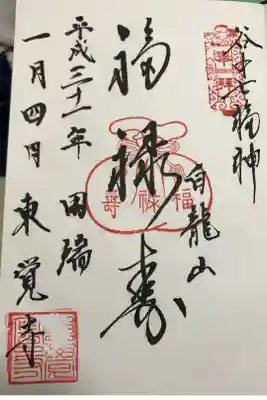 谷中七福神
奉拝
白龍山
福禄寿
福禄寿
平成三十一年 田端
一月四日 東覚寺